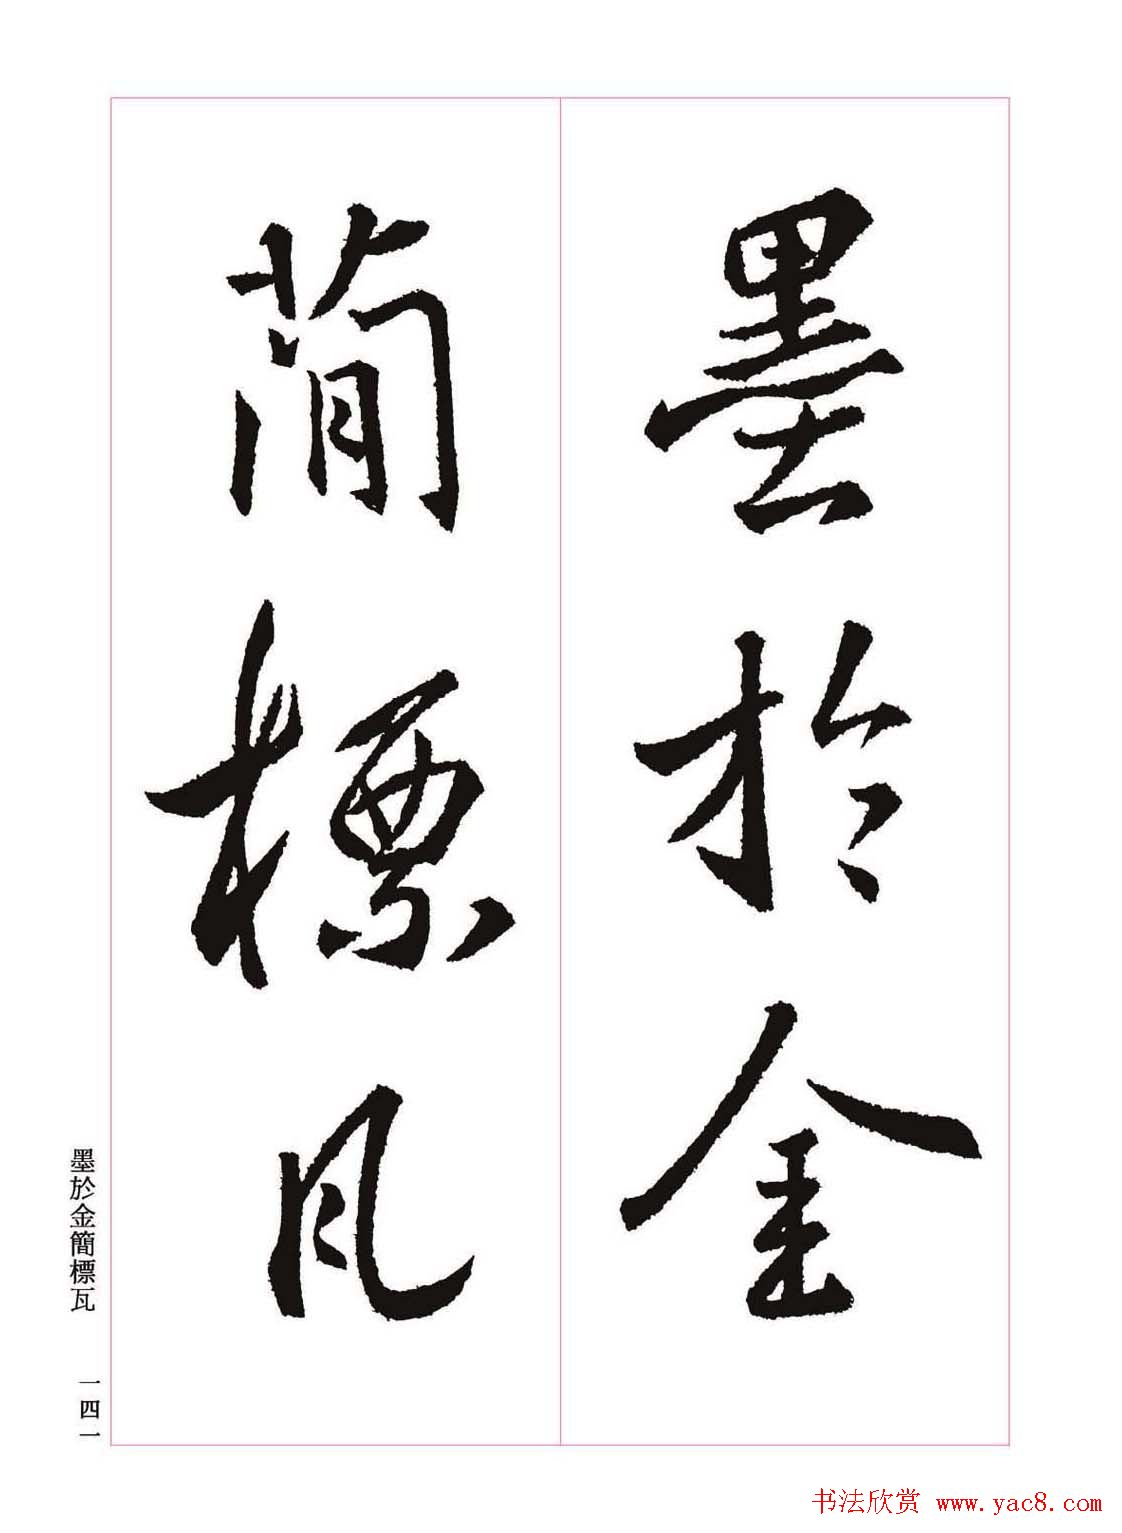 墨於金
簡標瓦
墨於金簡標瓦
一四一
书法欣赏 www.yac8.com